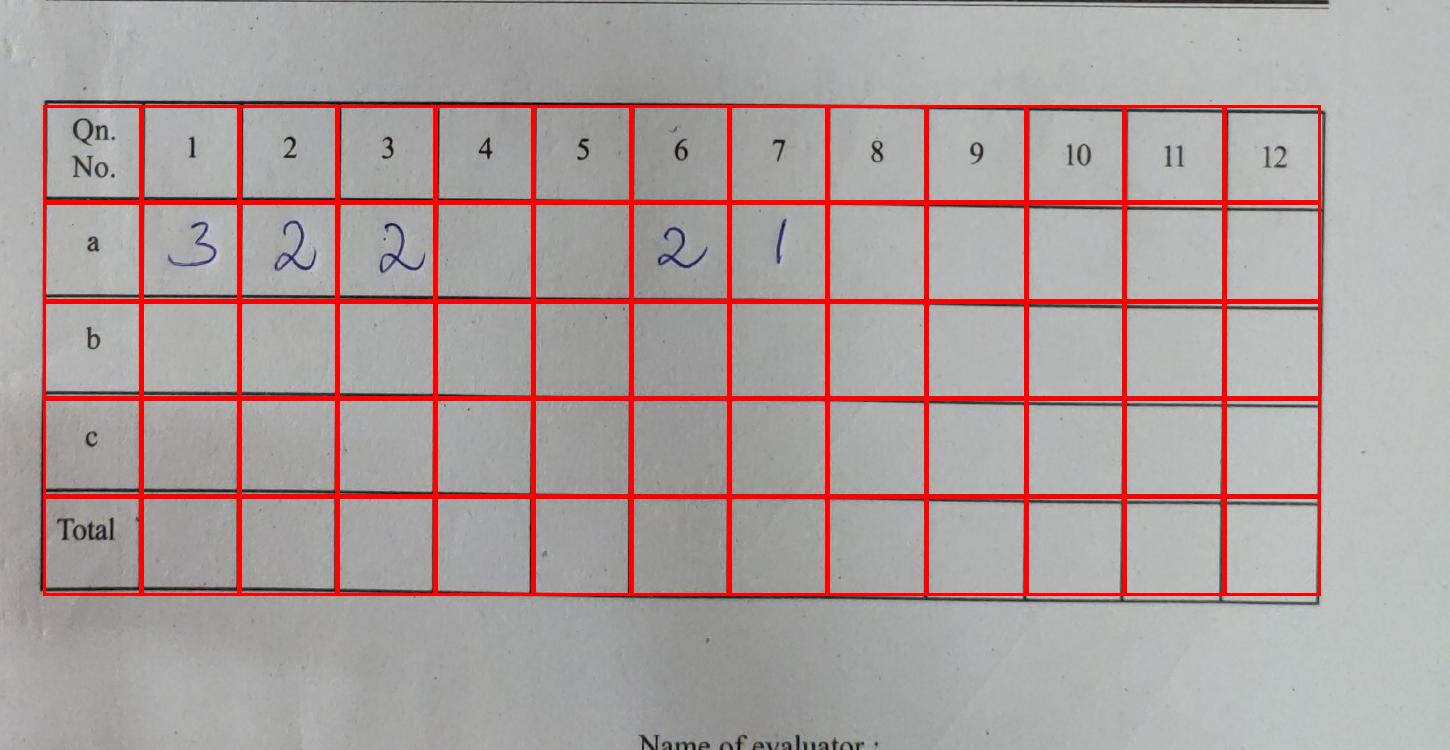 Qn. No. 1 2 3 4 5 6 7 8 9 10 11 12
a 3 2 2 2 1
b
c
Total
Name of evaluator :